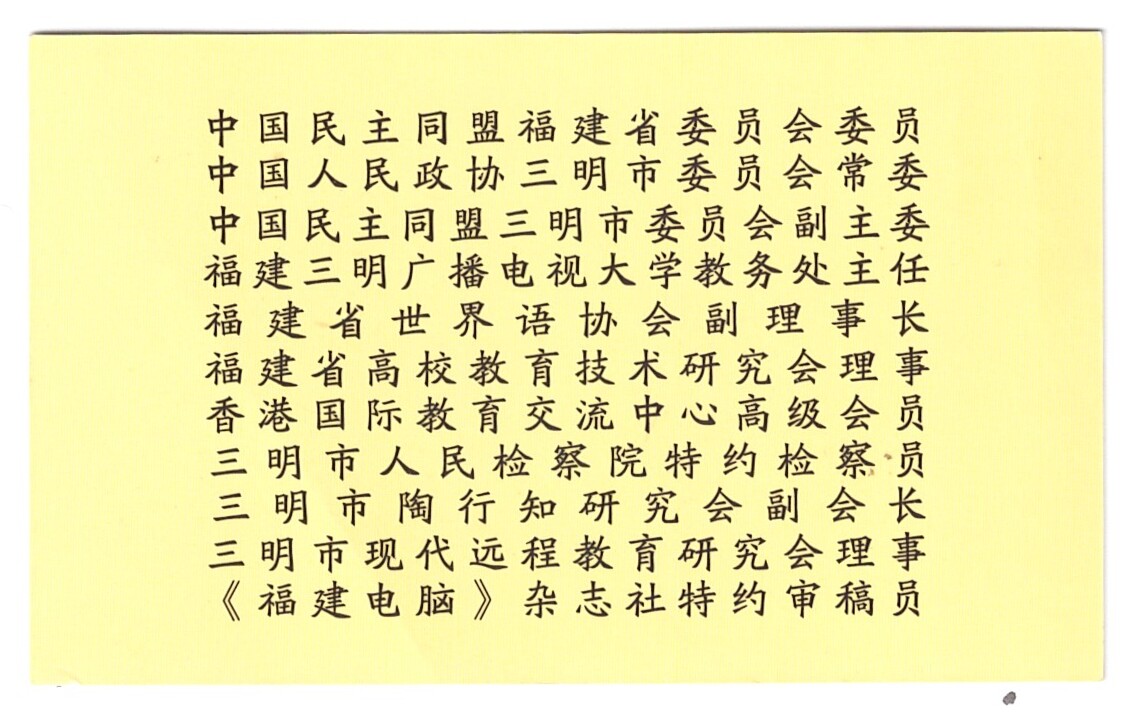 中国民主同盟福建省委员会委员
中国人民政协三明市委员会常委
中国民主同盟三明市委员会副主委
福建三明广播电视大学教务处主任
福建省世界语协会副理事长
福建省高校教育技术研究会理事
香港国际教育交流中心高级会员
三明市人民检察院特约检察员
三明市陶行知研究会副会长
三明市现代远程教育研究会理事
《福建电脑》杂志社特约审稿员